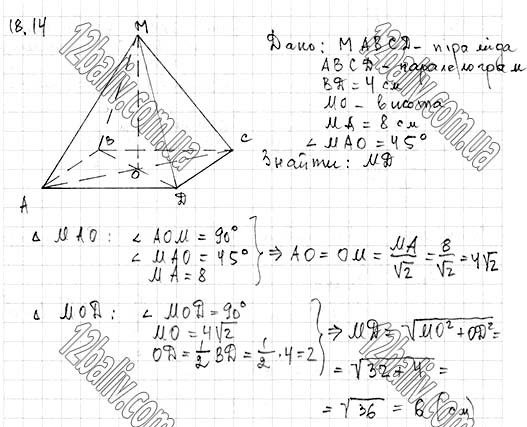 18.14
M
Дано: MABCD - піраміда
ABCD - паралелограм
BD = 4 см
MO - висота
MA = 8 см
∠MAO = 45°
Знайти: MD
B
C
O
A
D
Δ MAO: ∠ AOM = 90°
∠ MAO = 45°
MA = 8
⇒ AO = OM = MA/√2 = 8/√2 = 4√2
Δ MOD: ∠ MOD = 90°
MO = 4√2
OD = 1/2 BD = 1/2 · 4 = 2
⇒ MD = √(MO² + OD²) =
= √(32 + 4) =
= √36 = 6 (см)
12baliv.com.ua
12baliv.com.ua
12baliv.com.ua
12baliv.com.ua